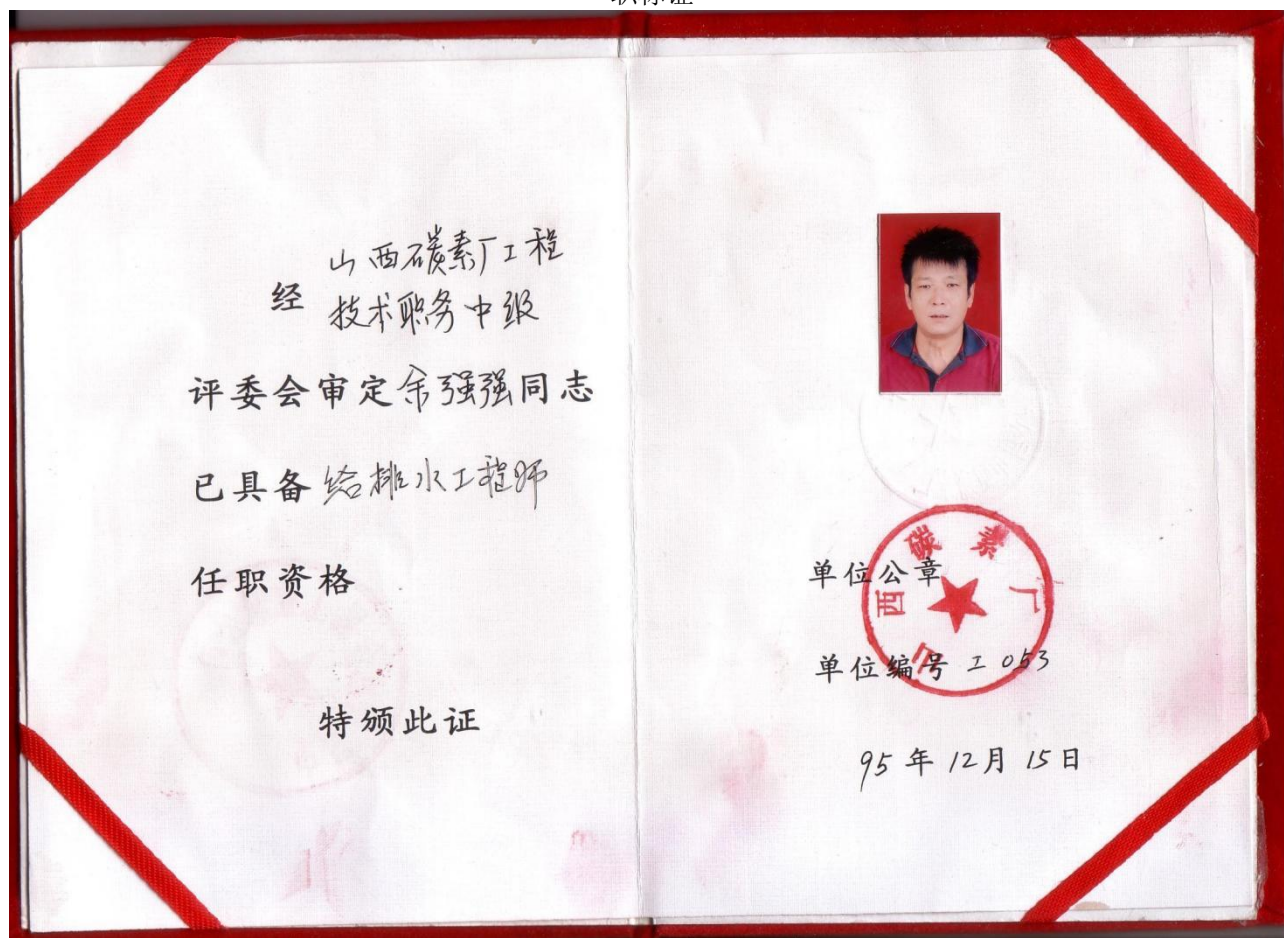 职称证
山西碳素厂工程
经 技术职务中级
评委会审定余强强同志
已具备给排水工程师
任职资格
特颁此证
山西碳素厂
单位公章
单位编号 工053
95年12月15日